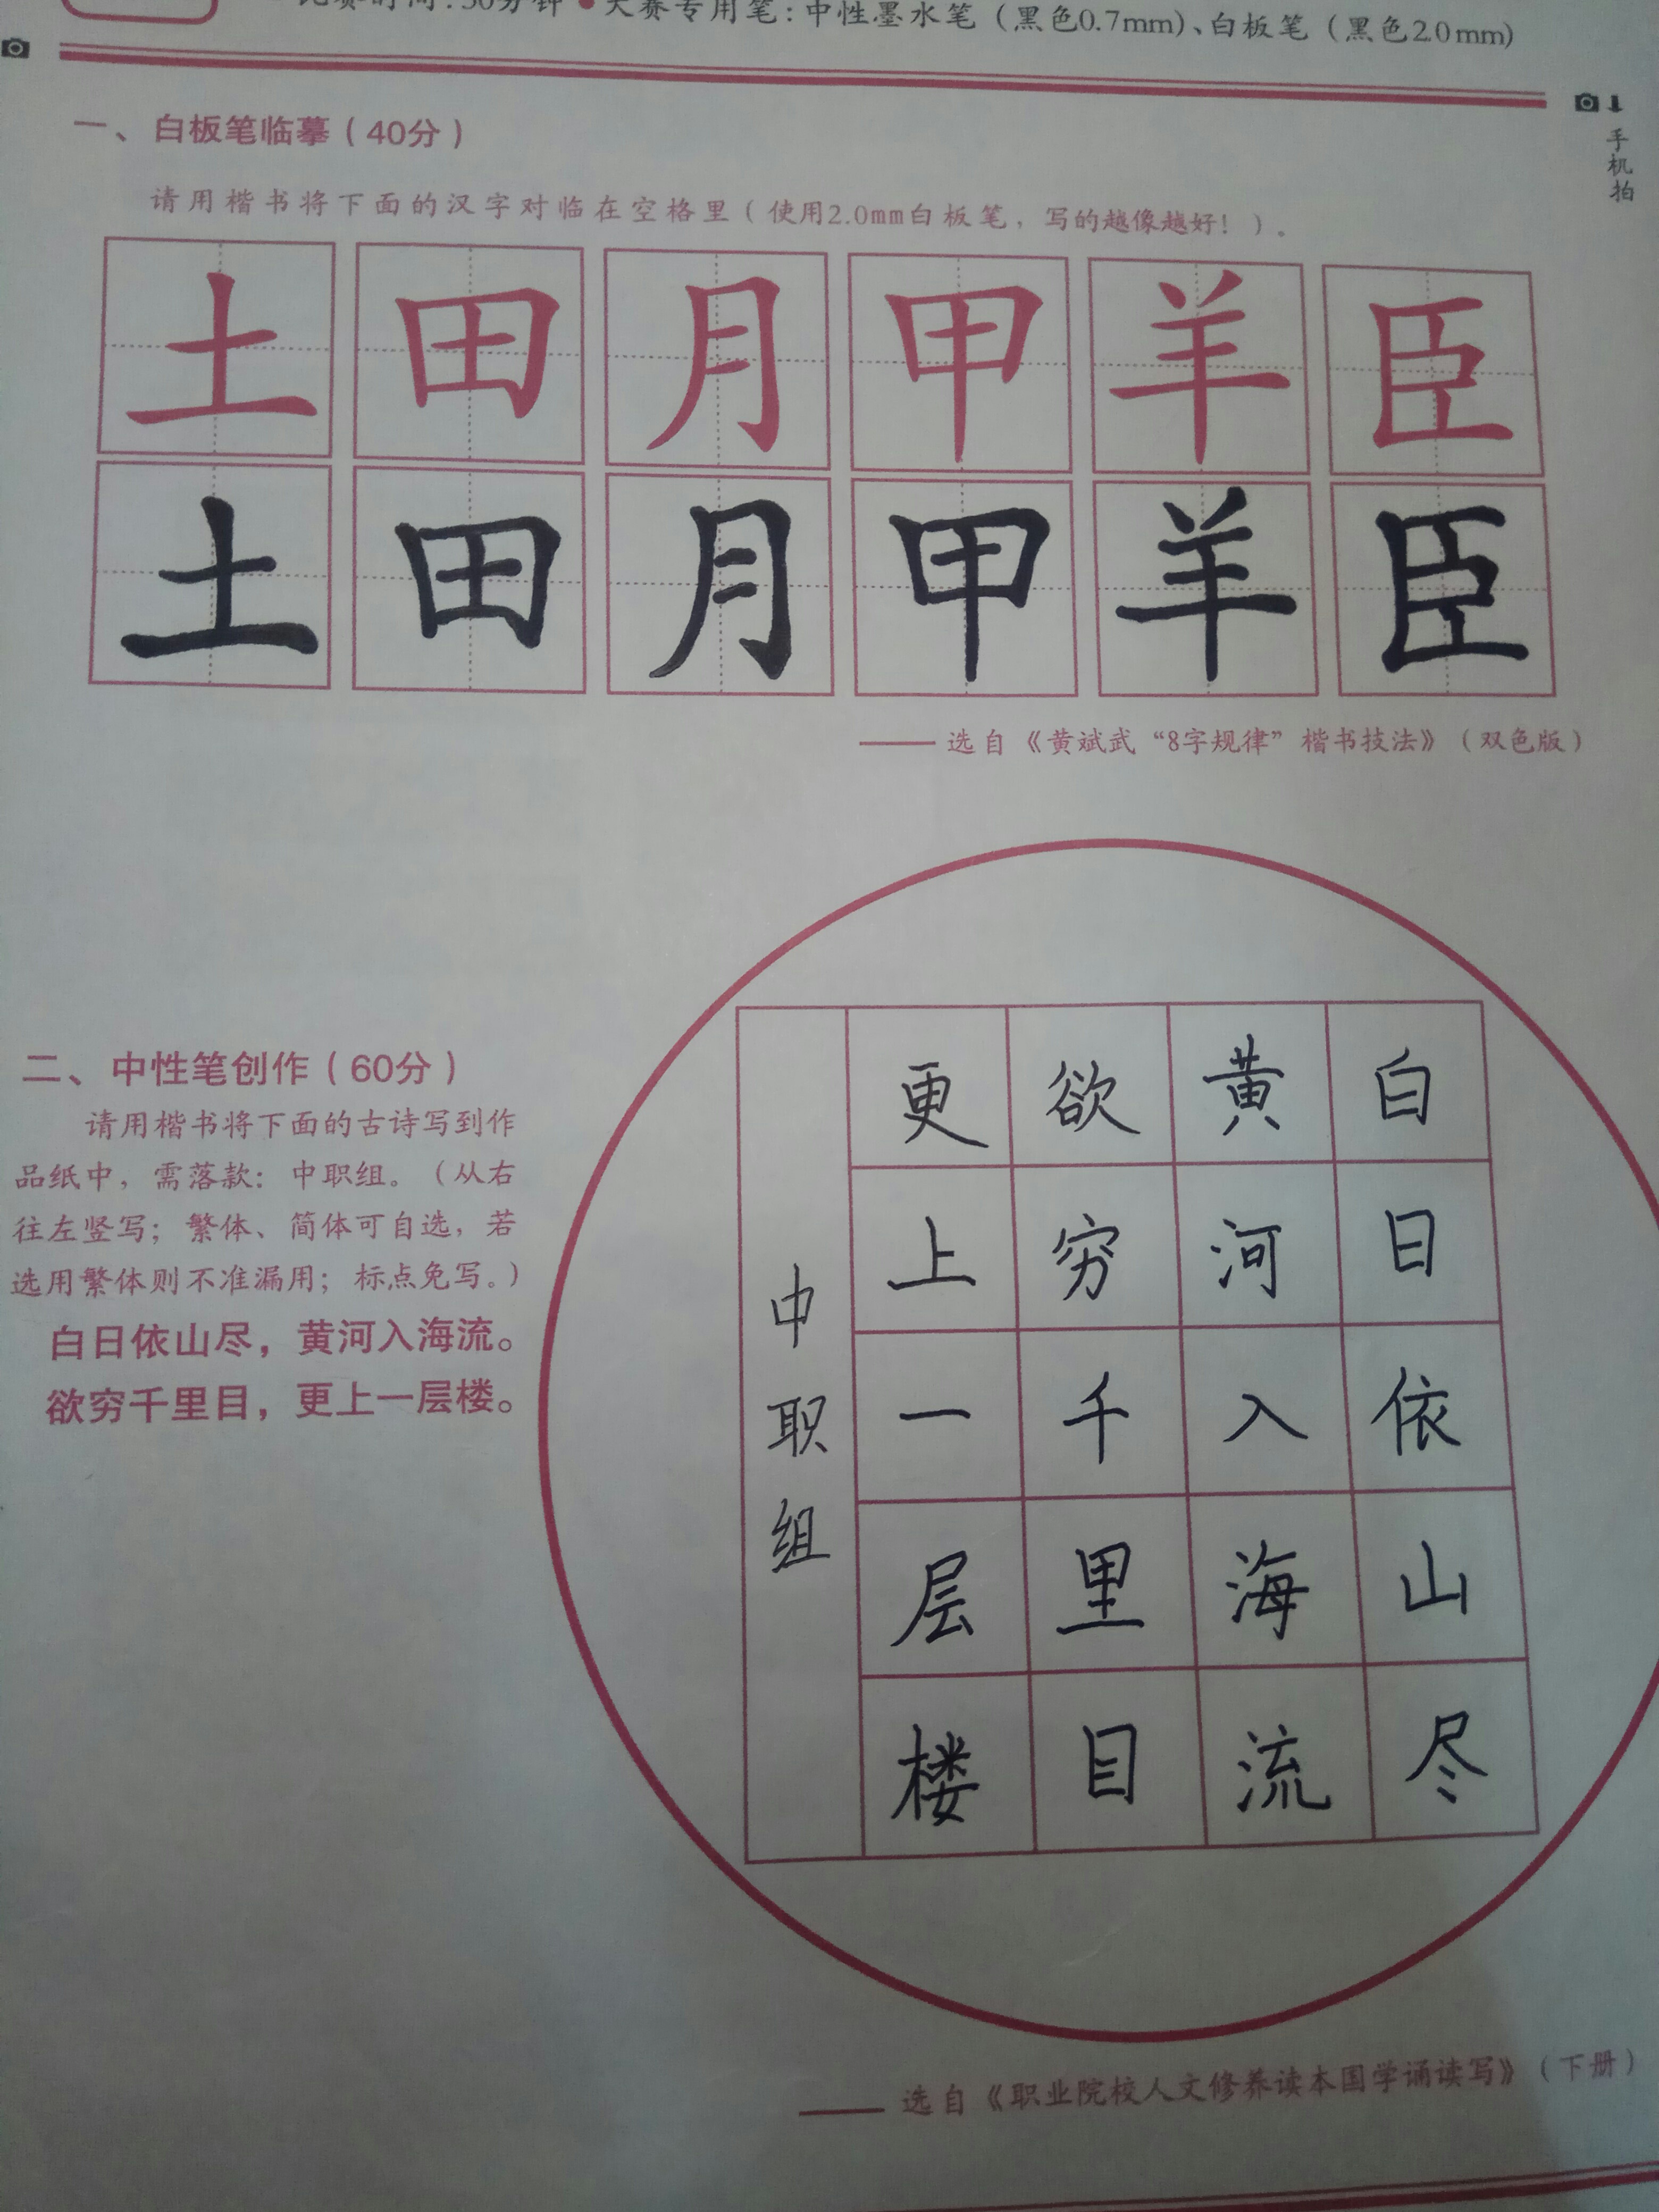 比赛时间:30分钟 ●大赛专用笔:中性墨水笔(黑色0.7mm)、白板笔(黑色2.0mm)
手机拍
一、白板笔临摹(40分)
请用楷书将下面的汉字对临在空格里(使用2.0mm白板笔,写的越像越好!)。
土田月甲羊臣
土田月甲羊臣
——选自《黄斌武“8字规律”楷书技法》(双色版)
二、中性笔创作(60分)
请用楷书将下面的古诗写到作
品纸中,需落款:中职组。(从右
往左竖写;繁体、简体可自选,若
选用繁体则不准漏用;标点免写。)
白日依山尽,黄河入海流。
欲穷千里目,更上一层楼。
白日依山尽
黄河入海流
欲穷千里目
更上一层楼
中职组
——选自《职业院校人文修养读本国学诵读写》(下册)